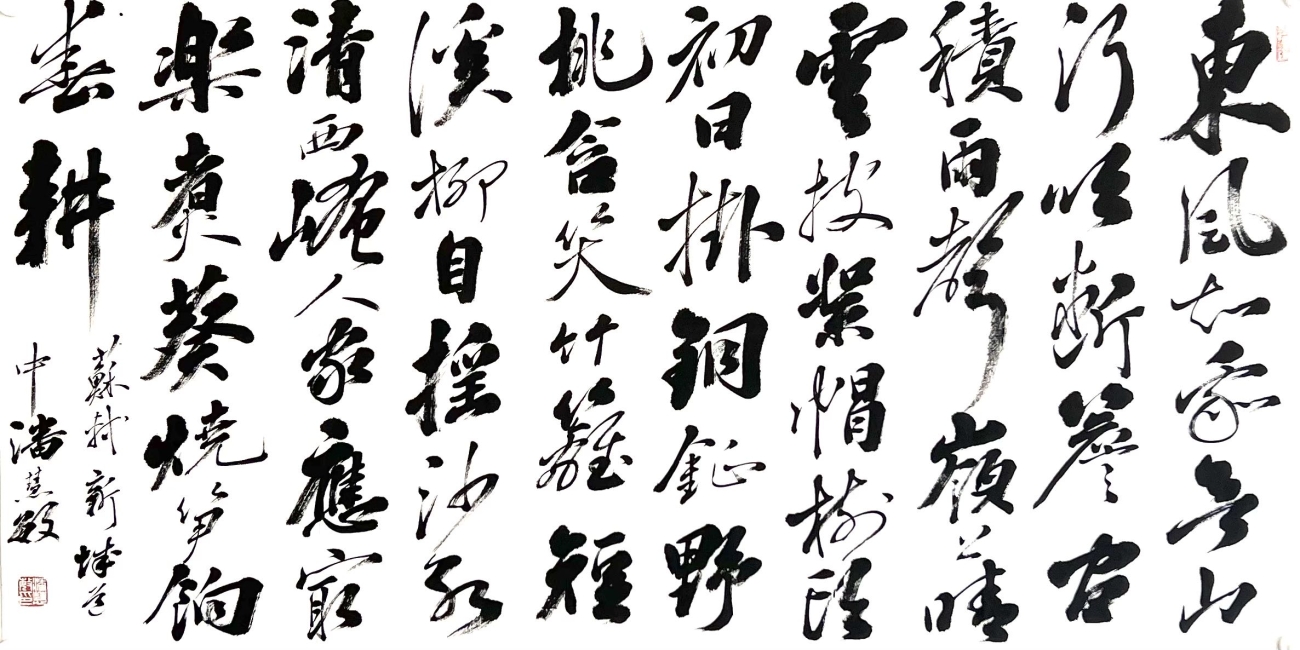 東風知我欲山
行吹斷簷間
積雨聲嶺上晴
雲披絮帽樹頭
初日掛銅鉦野
桃含笑竹籬短
溪柳自搖沙水
清西崦人家應最
樂煮葵燒筍餉
春耕
蘇軾新城道
中潘慧敏